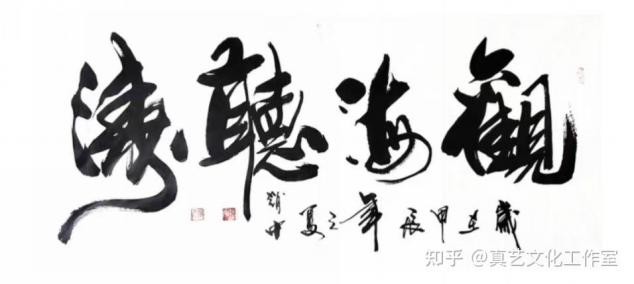 觀海聽濤
歲在甲辰年之夏
知乎 @真艺文化工作室